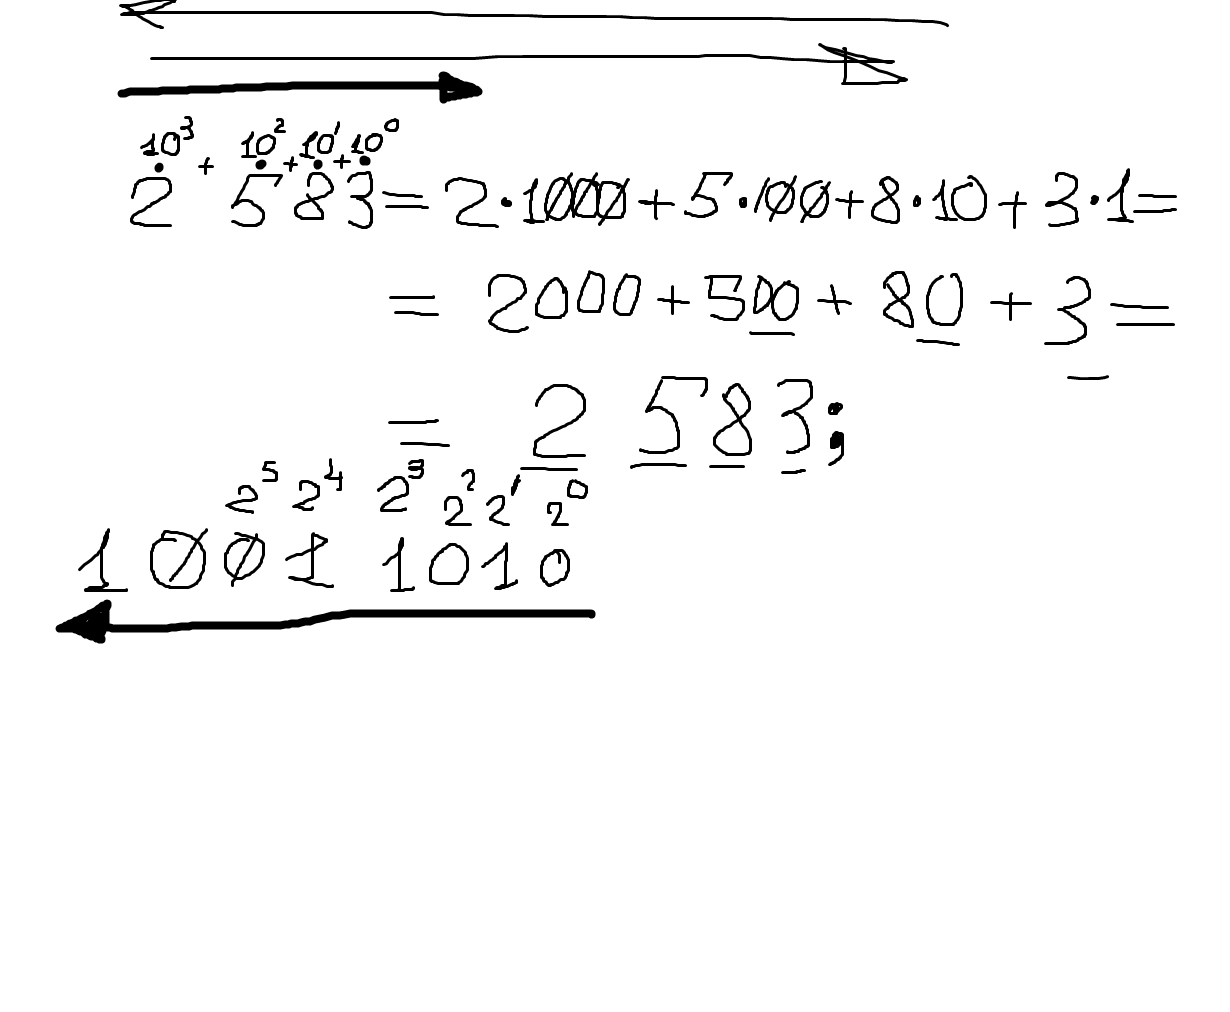 10³ + 10² + 10¹ + 10⁰
2 583 = 2·1000 + 5·100 + 8·10 + 3·1 =
= 2000 + 500 + 80 + 3 =
= 2 583;
2⁵ 2⁴ 2³ 2² 2¹ 2⁰
1001 1010